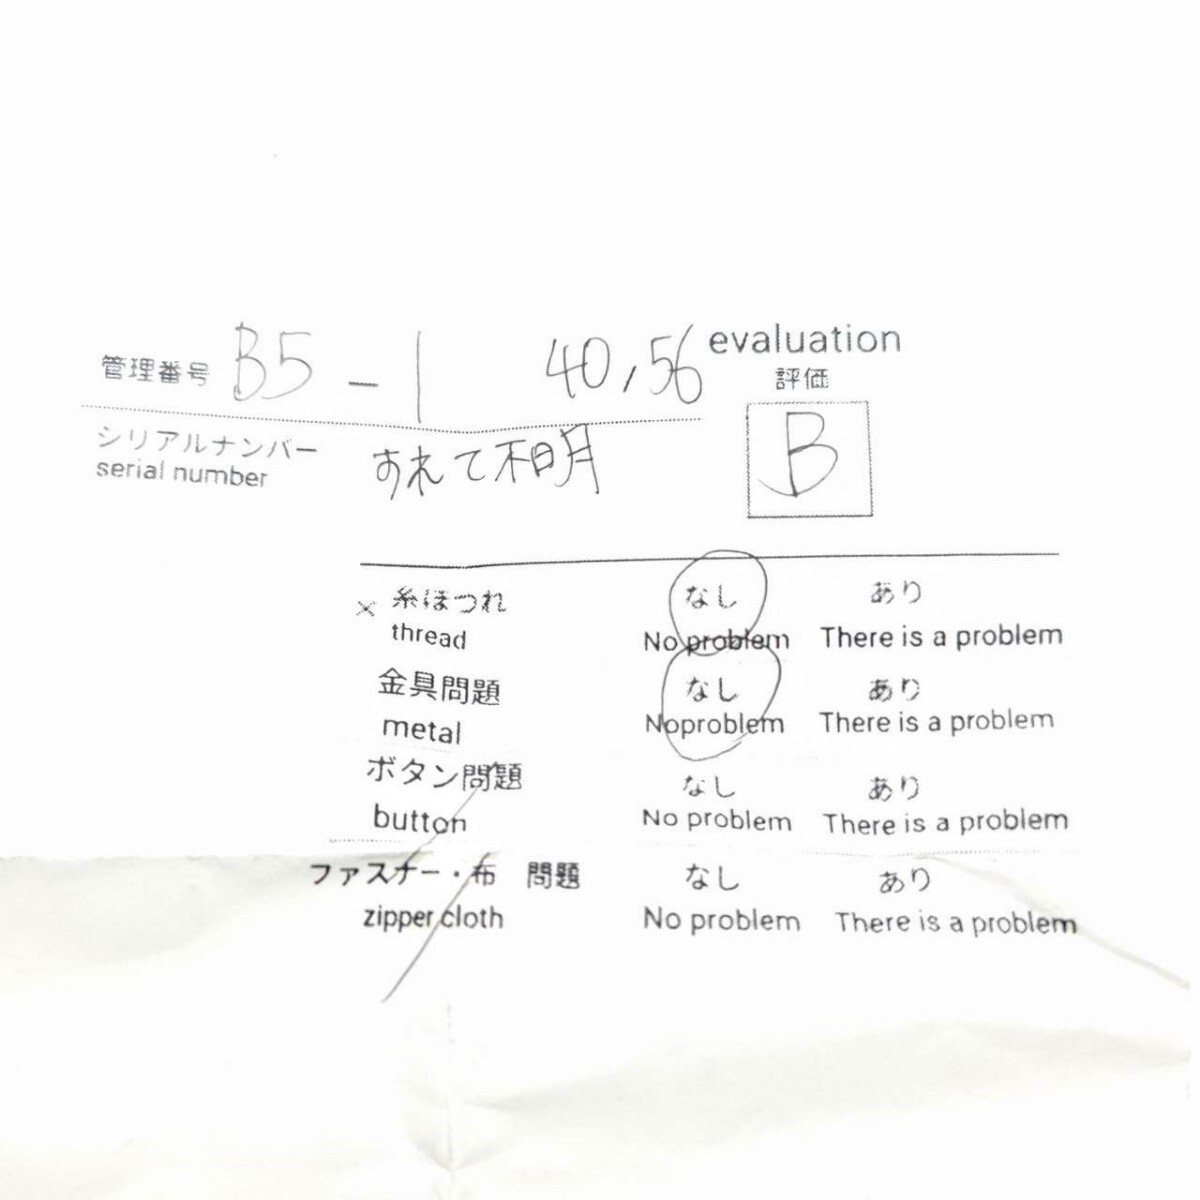 管理番号 B5-1 40,56
evaluation
評価
シリアルナンバー
serial number
すれて不明
B
× 糸ほつれ なし あり
thread No problem There is a problem
金具問題 なし あり
metal Noproblem There is a problem
ボタン問題 なし あり
button No problem There is a problem
ファスナー・布 問題 なし あり
zipper cloth No problem There is a problem